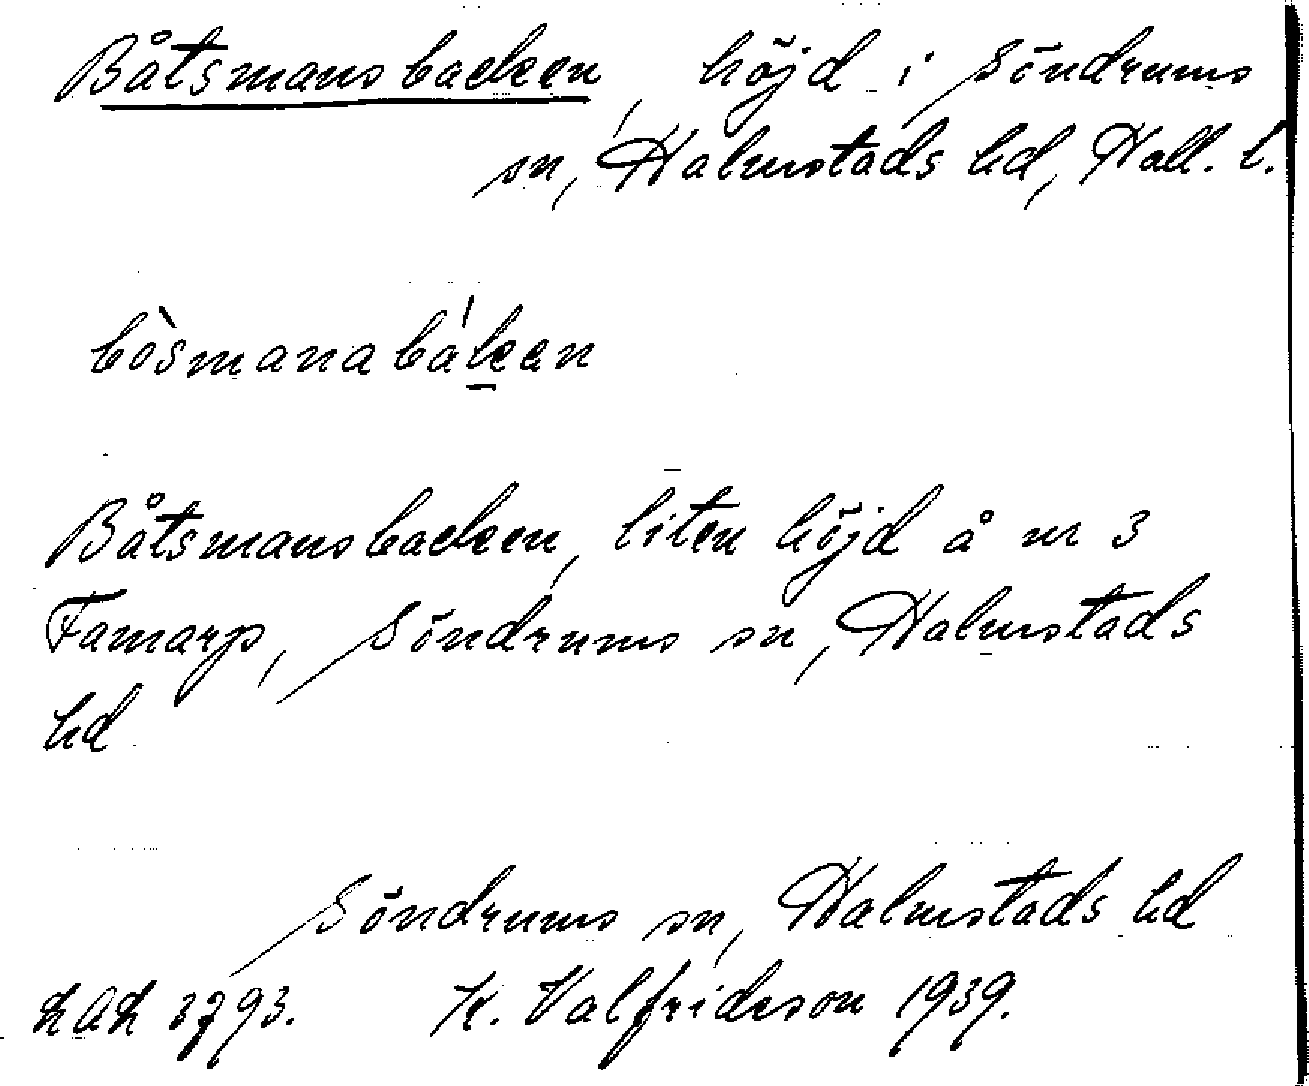 Båtsmansbacken, höjd i Söndrums
sn, Halmstads hd, Hall. l.
bòsmanabáken
Båtsmansbacken, liten höjd å nr 3
Famarp, Söndrums sn, Halmstads
hd
Söndrums sn, Halmstads hd
K. Valfridsson 1939.